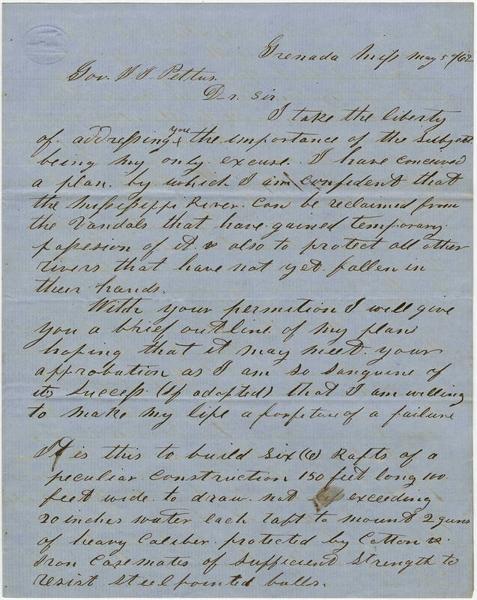 Grenada Miss May 5th/62
Gov. J J Pettus
Dr. Sir
I take the liberty
of addressing you the importance of the Subject
being my only excuse. I have conceived
a plan by which I am confident that
the Mississippi River can be reclaimed from
the Vandals that have gained temporary
possession of it & also to protect all other
rivers that have not yet fallen in
their hands.
With your permition I will give
you a brief outline of my plan
hoping that it may meet your
approbation as I am so sanguine of
its Success (If adopted) that I am willing
to make my life a forfeiture of a failure
It is this to build Six (6) Rafts of a
peculiar construction 150 feet long 100
feet wide to draw not exceeding
20 inches water each raft to mount 2 guns
of heavy Caliber protected by Cotton &
Iron Casemates of Sufficient Strength to
resist Steel pointed balls.